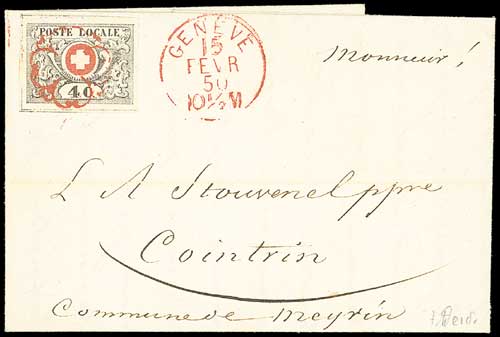 POSTE LOCALE
4 C
GENÈVE
15
FEVR
50
10½ M
Monsieur!
L A Stouvenel ppre
Cointrin
Commune de Meyrin